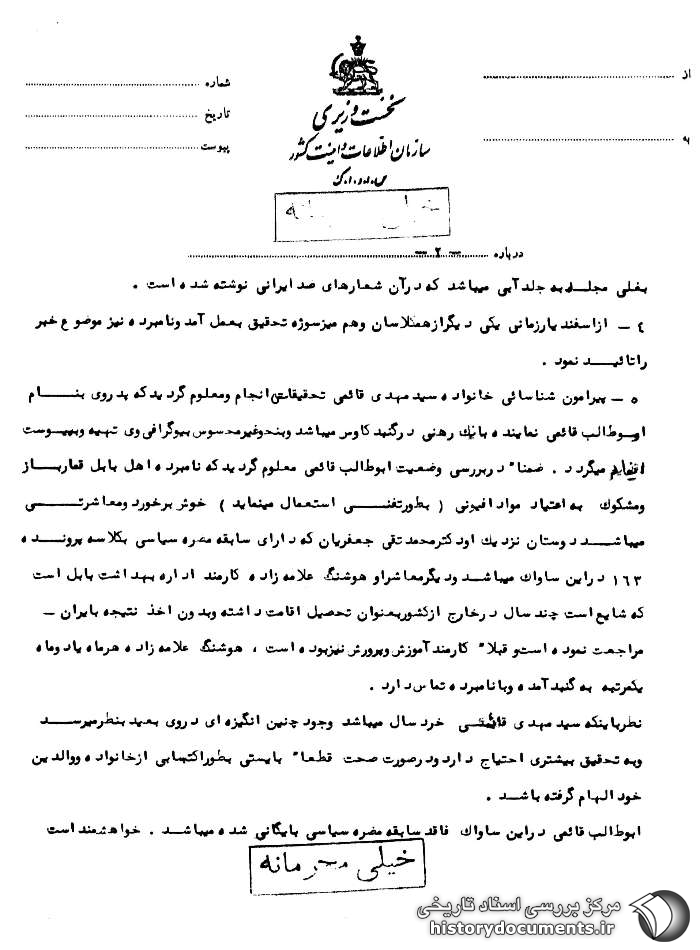 از
به
شماره
تاریخ
پیوست
نخست وزیری
سازمان اطلاعات و امنیت کشور
خیلی محرمانه
درباره - ۲ -
بغلی مجلد به جلد آبی میباشد که در آن شعارهای ضد ایرانی نوشته شده است .
٤ - از اسفندیار زمانی یکی دیگر از همکلاسان وهم میز سوژه تحقیق بعمل آمد ونامبرده نیز موضوع خبر
را تائید نمود .
٥ - پیرامون شناسائی خانواده سید مهدی قائمی تحقیقات انجام ومعلوم گردید که پدر وی بنام
ابوطالب قائمی نماینده بانك رهنی در گنبد کاوس میباشد وبنحو غیر محسوس بیوگرافی وی تهیه وبپیوست
میگردد . ضمنا" در بررسی وضعیت ابوطالب قائمی معلوم گردید که نامبرده اهل بابل قمار باز
ومشکوك به اعتیاد مواد افیونی ( بطور تفننی استعمال مینماید ) خوش برخورد ومعاشرتی
میباشد دوستان نزدیك او دکتر محمد تقی جعفریان که دارای سابقه مضره سیاسی بکلاسه پرونده
۱۶۳ در این ساواك میباشد ودیگر معاشر او هوشنگ علامه زاده کارمند اداره بهداشت بابل است
که شایع است چند سال در خارج از کشور بعنوان تحصیل اقامت داشته وبدون اخذ نتیجه بایران -
مراجعت نموده است و قبلا" کارمند آموزش وپرورش نیز بوده است ، هوشنگ علامه زاده هرماه یا دوماه
یکمرتبه به گنبد آمده وبا نامبرده تماس دارد .
نظر باینکه سید مهدی قائمی خرد سال میباشد وجود چنین انگیزه ای در وی بعید بنظر میرسد
وبه تحقیق بیشتری احتیاج دارد ودر صورت صحت قطعا" بایستی بطور اکتسابی از خانواده ووالدین
خود الهام گرفته باشد .
ابوطالب قائمی در این ساواك فاقد سابقه مضره سیاسی بایگانی شده میباشد . خواهشمند است
خیلی محرمانه
مرکز بررسی اسناد تاریخی
historydocuments.ir